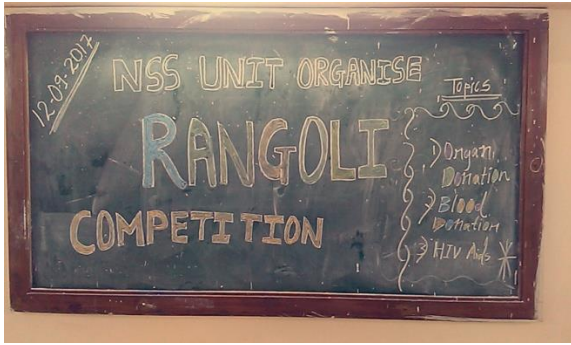 12-09-2017
NSS UNIT ORGANISE
RANGOLI
COMPETITION
Topics
1) Organ
Donation
2) Blood
Donation
3) HIV Aids